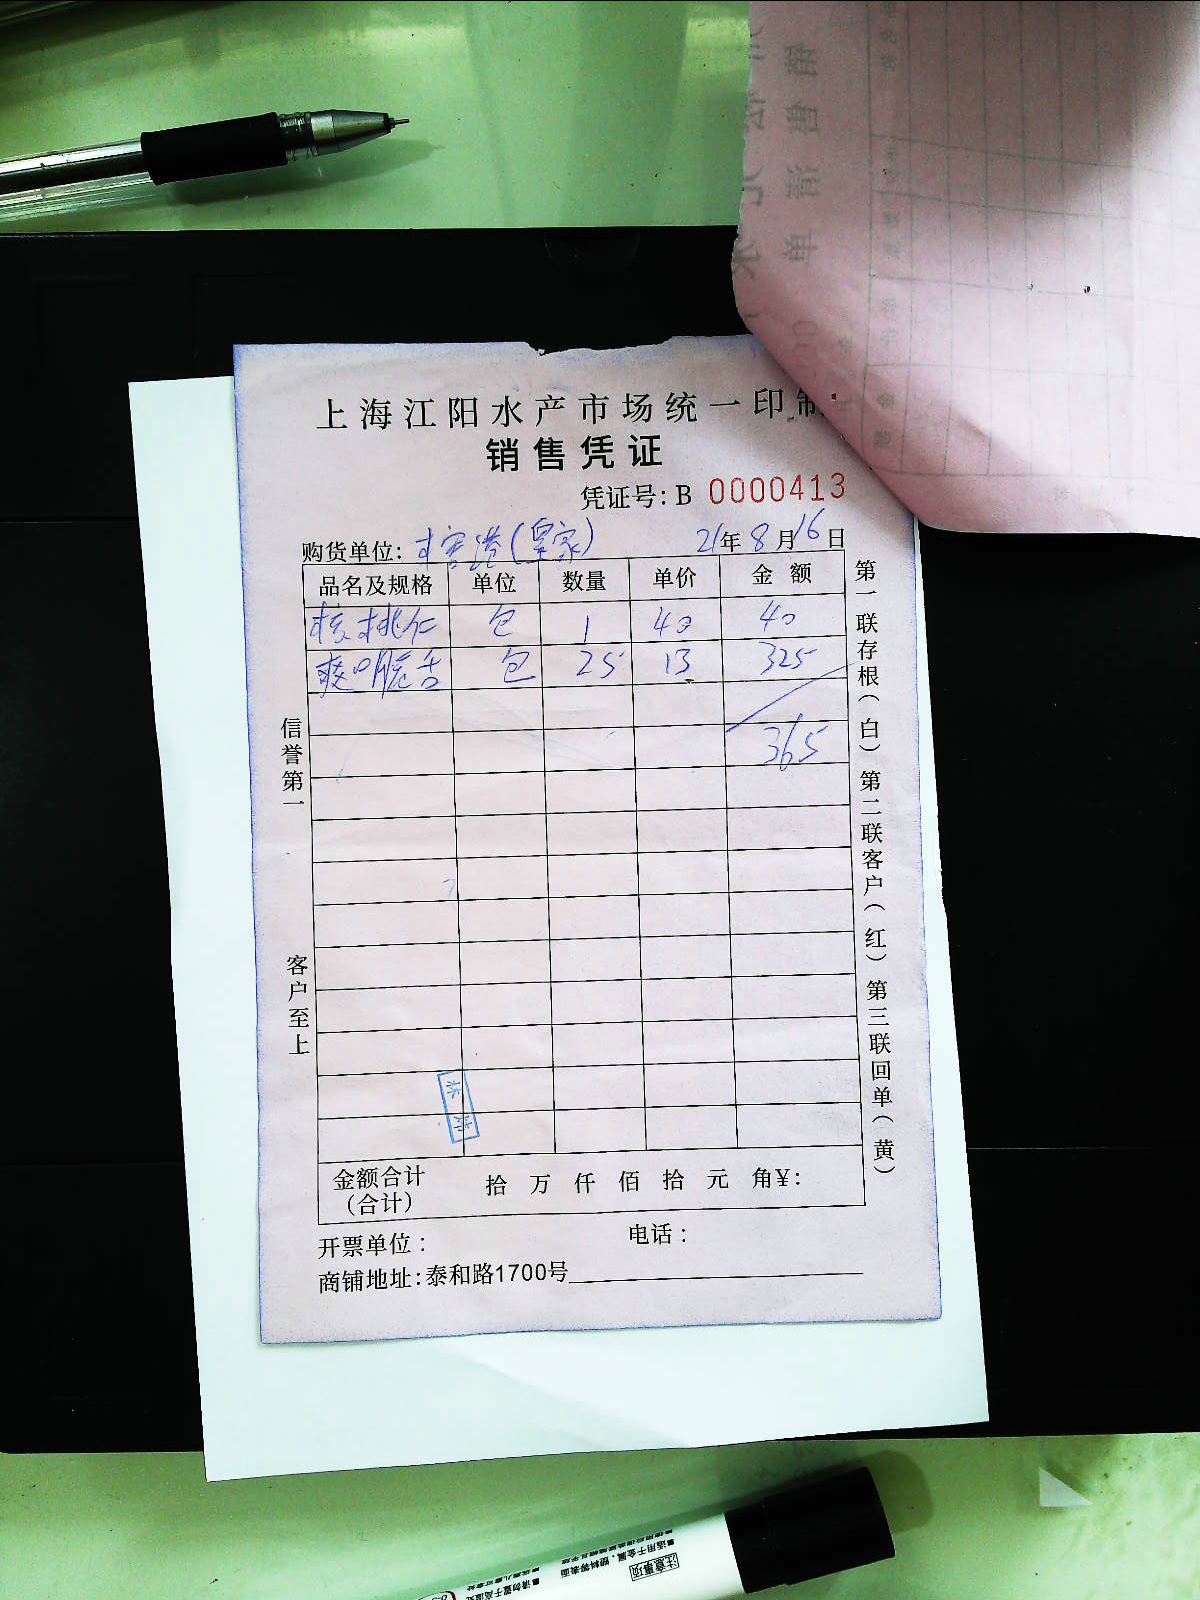 上海江阳水产市场统一印制
销售凭证
凭证号: B 0000413
购货单位: (皇家) 21年8月16日
品名及规格 单位 数量 单价 金额
核桃仁 包 1 40 40
爽口脆舌 包 25 13 325
365
金额合计 拾 万 仟 佰 拾 元 角¥:
(合计)
开票单位: 电话:
商铺地址:泰和路1700号
信誉第一 客户至上
第一联存根(白) 第二联客户(红) 第三联回单(黄)
注意事项
■适用于金属、塑料等表面
■请勿置于高温处